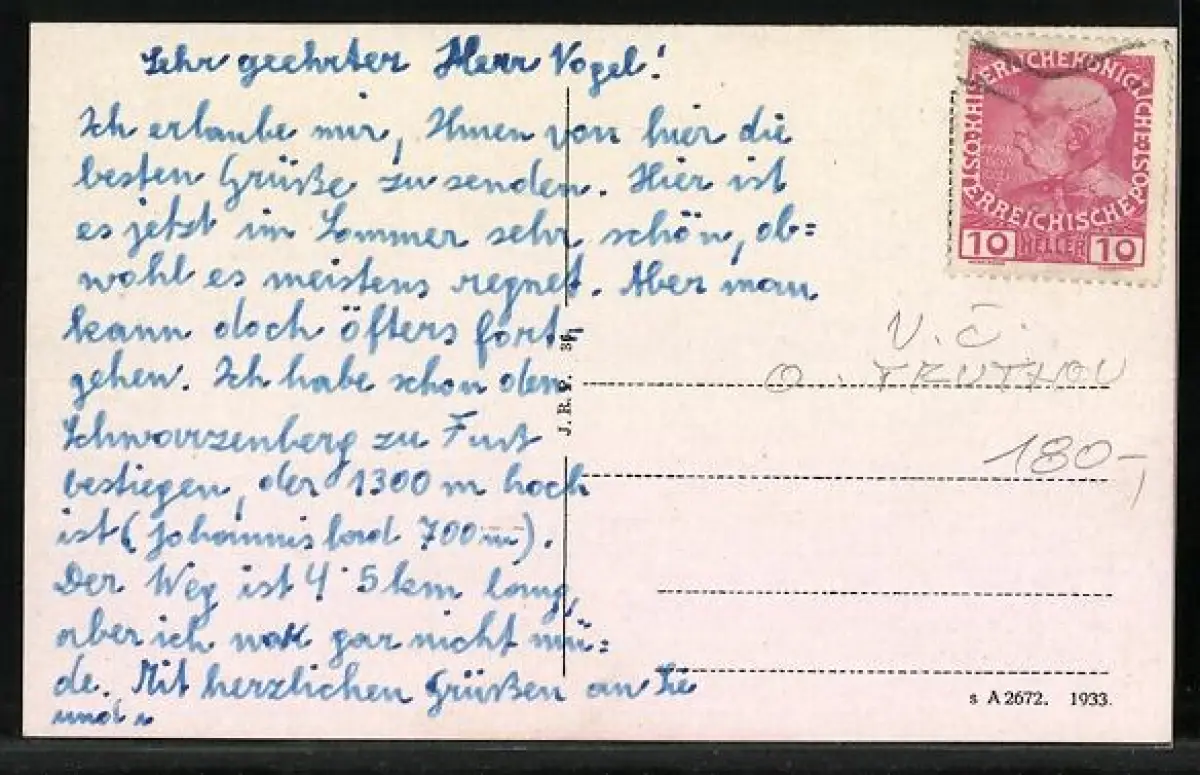 Sehr geehrter Herr Vogel!
Ich erlaube mir, Ihnen von hier die
besten Grüße zu senden. Hier ist
es jetzt im Sommer sehr schön, ob=
wohl es meistens regnet. Aber man
kann doch öfters fort-
gehen. Ich habe schon den
Schwarzenberg zu Fuß
bestiegen, der 1300 m hoch
ist (Johannisbad 700 m).
Der Weg ist 4·5 km lang,
aber ich war gar nicht mü=
de. Mit herzlichen Grüßen an Sie
und
ÖSTERREICHISCHE POST
10 HELLER 10
V. Č.
O. TRUTNOV
180-,
J. R.
s A 2672. 1933.